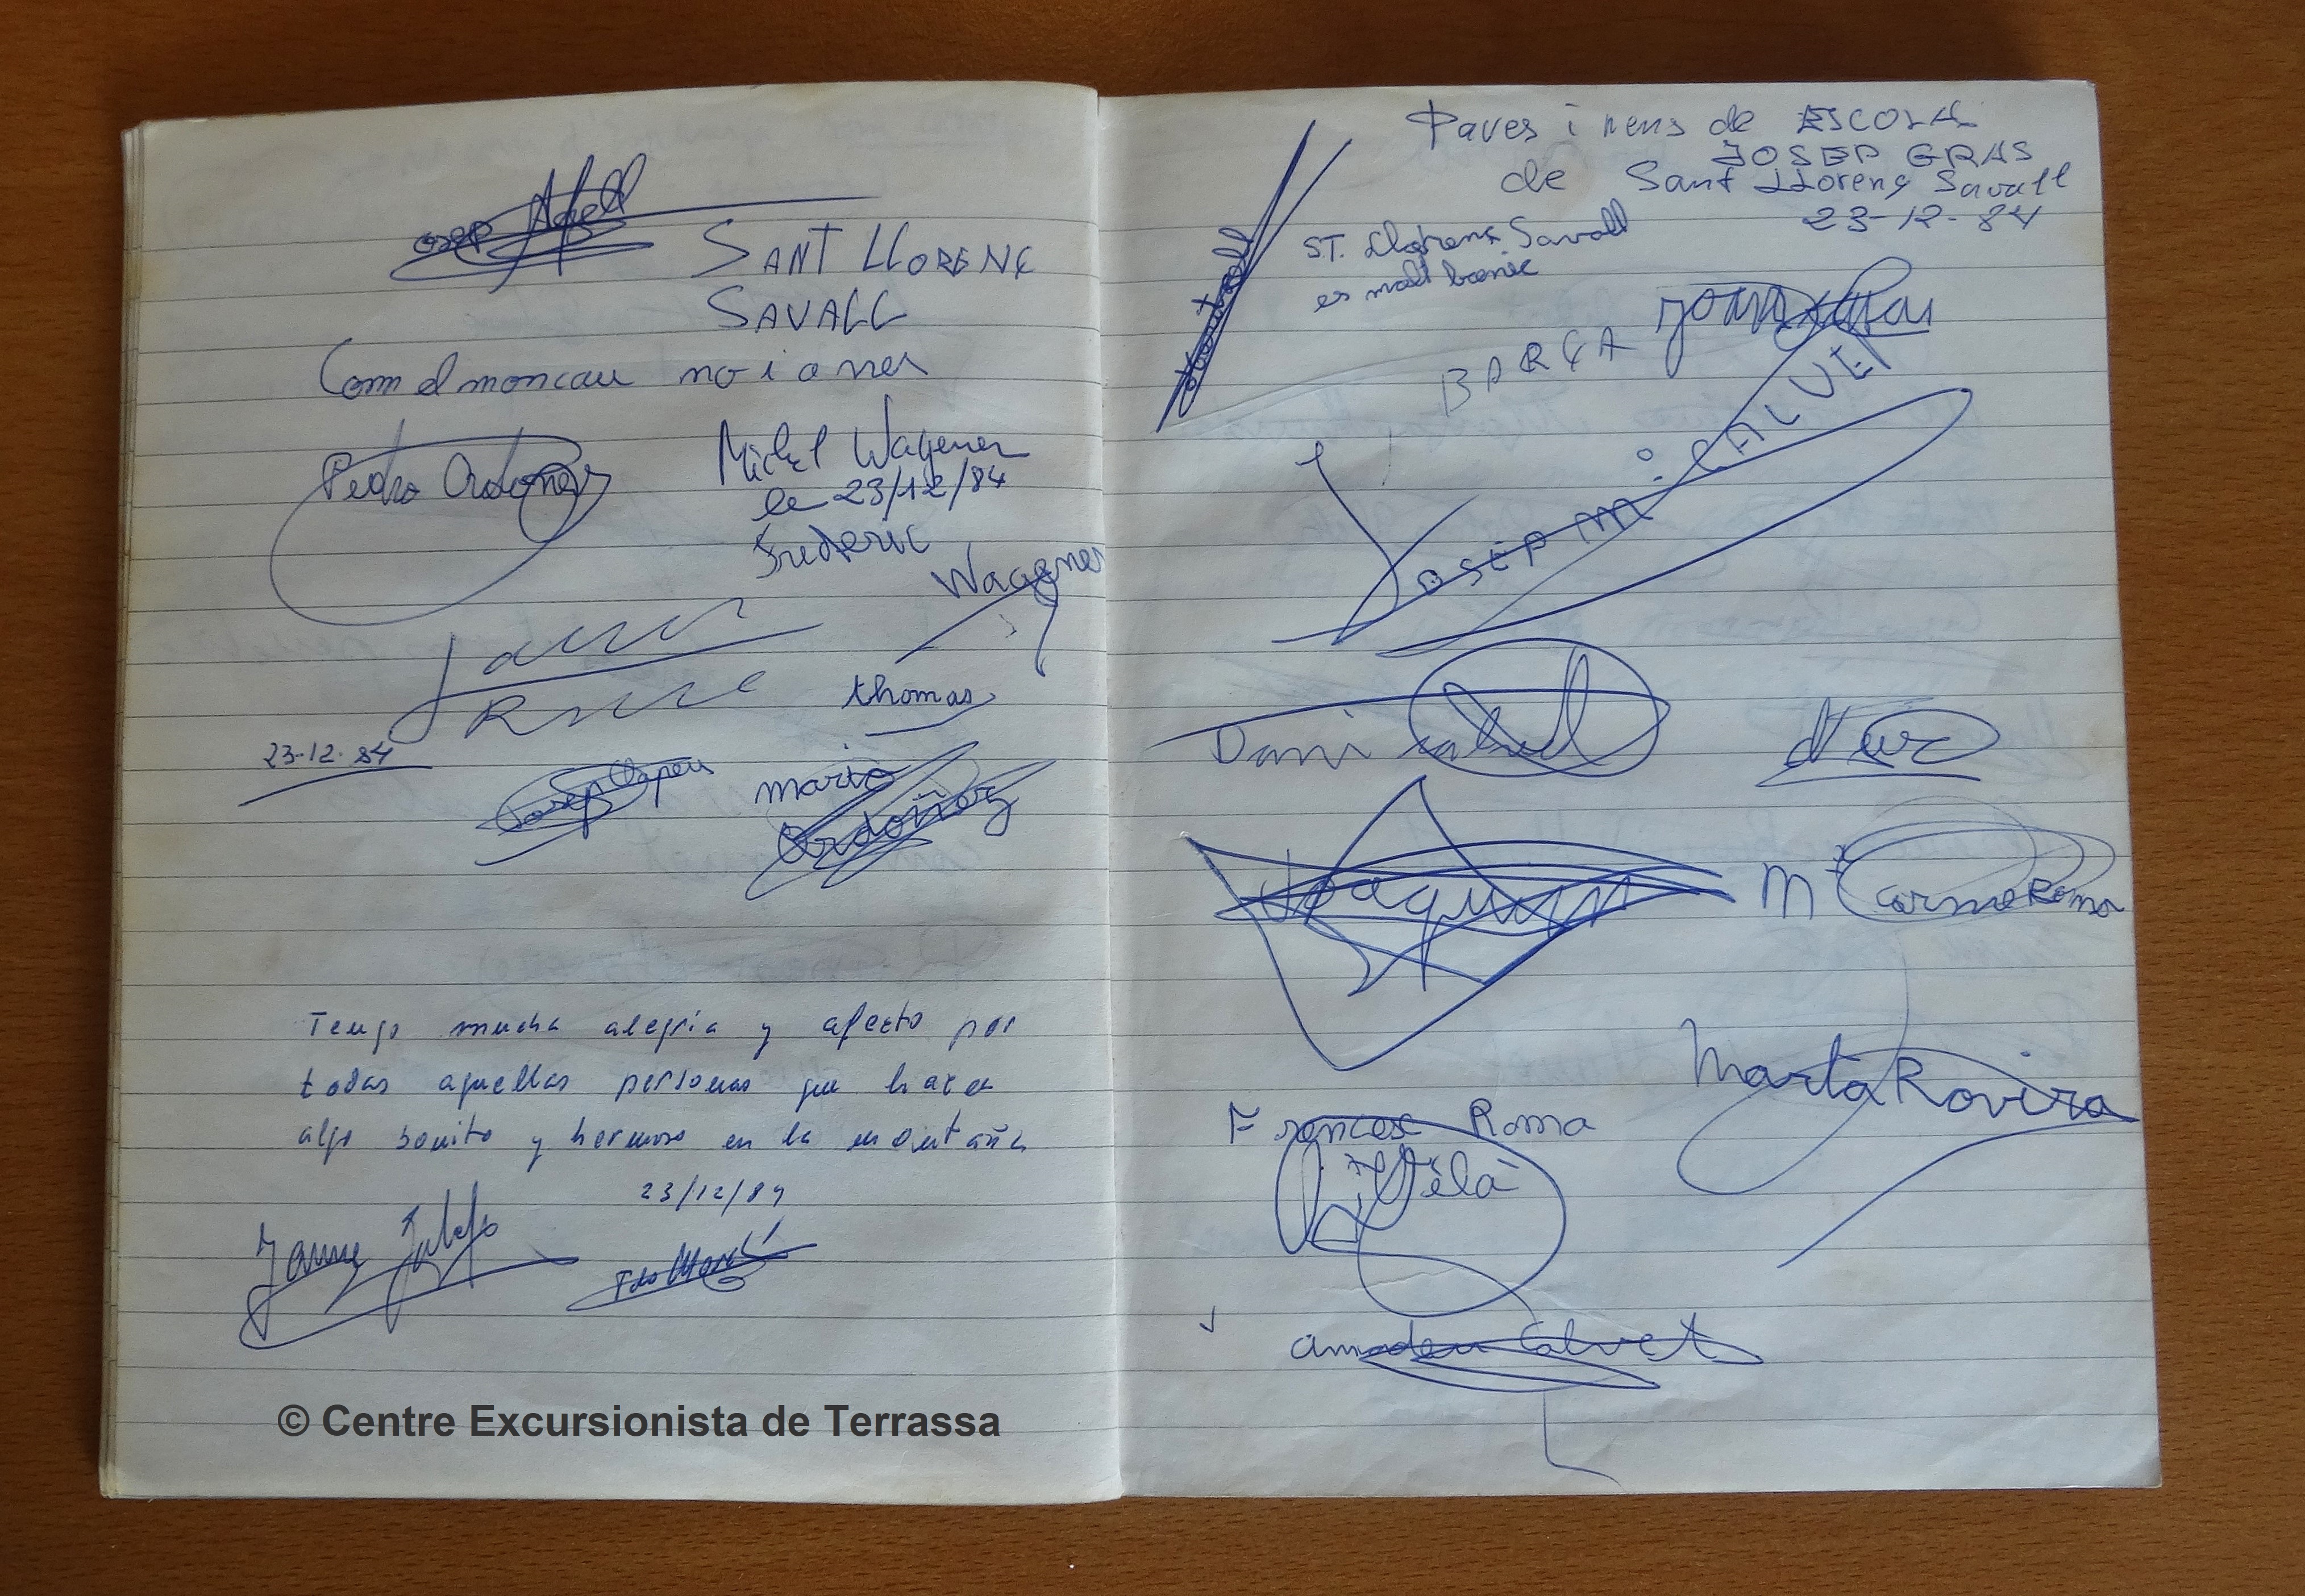 osep Agell
SANT LLORENÇ
SAVALL
Com el moncau no i a res
Pedro Ordoñez
Michel Wagener
le 23/12/84
Frederic
Wagener
thomas
23-12-84
Josep Clapers
maria
Ordoñez
Tengo mucha alegría y afecto por
todas aquellas personas que hacen
algo bonito y hermoso en la montaña
23/12/84
Jaume
© Centre Excursionista de Terrassa
Pares i nens de ESCOLA
JOSEP GRAS
de Sant LLorenç Savall
23-12-84
ST. Llorenç Savall
es molt bonic
BARÇA
Josep Mº CALVET
Dani
Joaquim
Mª Carme Roma
Marta Rovira
Francesc Roma
Vilà
Amadeu Calvet